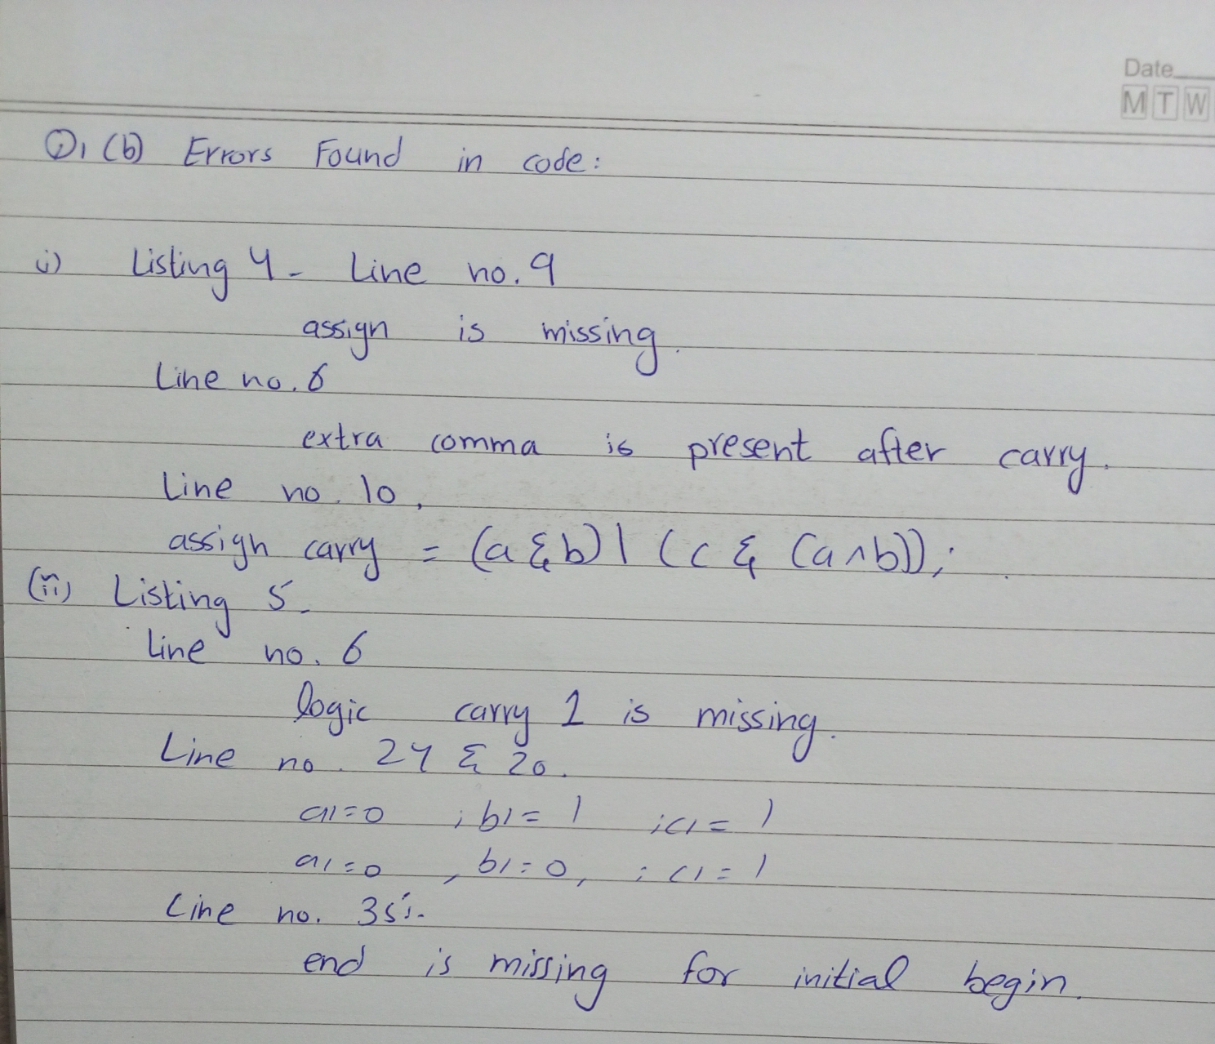 Date
M T W
Q1 (b) Errors Found in code:
i) Listing 4 - Line no. 9
assign is missing.
Line no. 6
extra comma is present after carry.
Line no. 10,
assign carry = (a & b) | (c & (a ^ b));
(ii) Listing 5 -
Line no. 6
logic carry 1 is missing.
Line no. 24 & 20.
a1=0 ; b1= 1 ; c1= 1
a1=0 , b1=0, ; c1=1
Line no. 35:-
end is missing for initial begin.